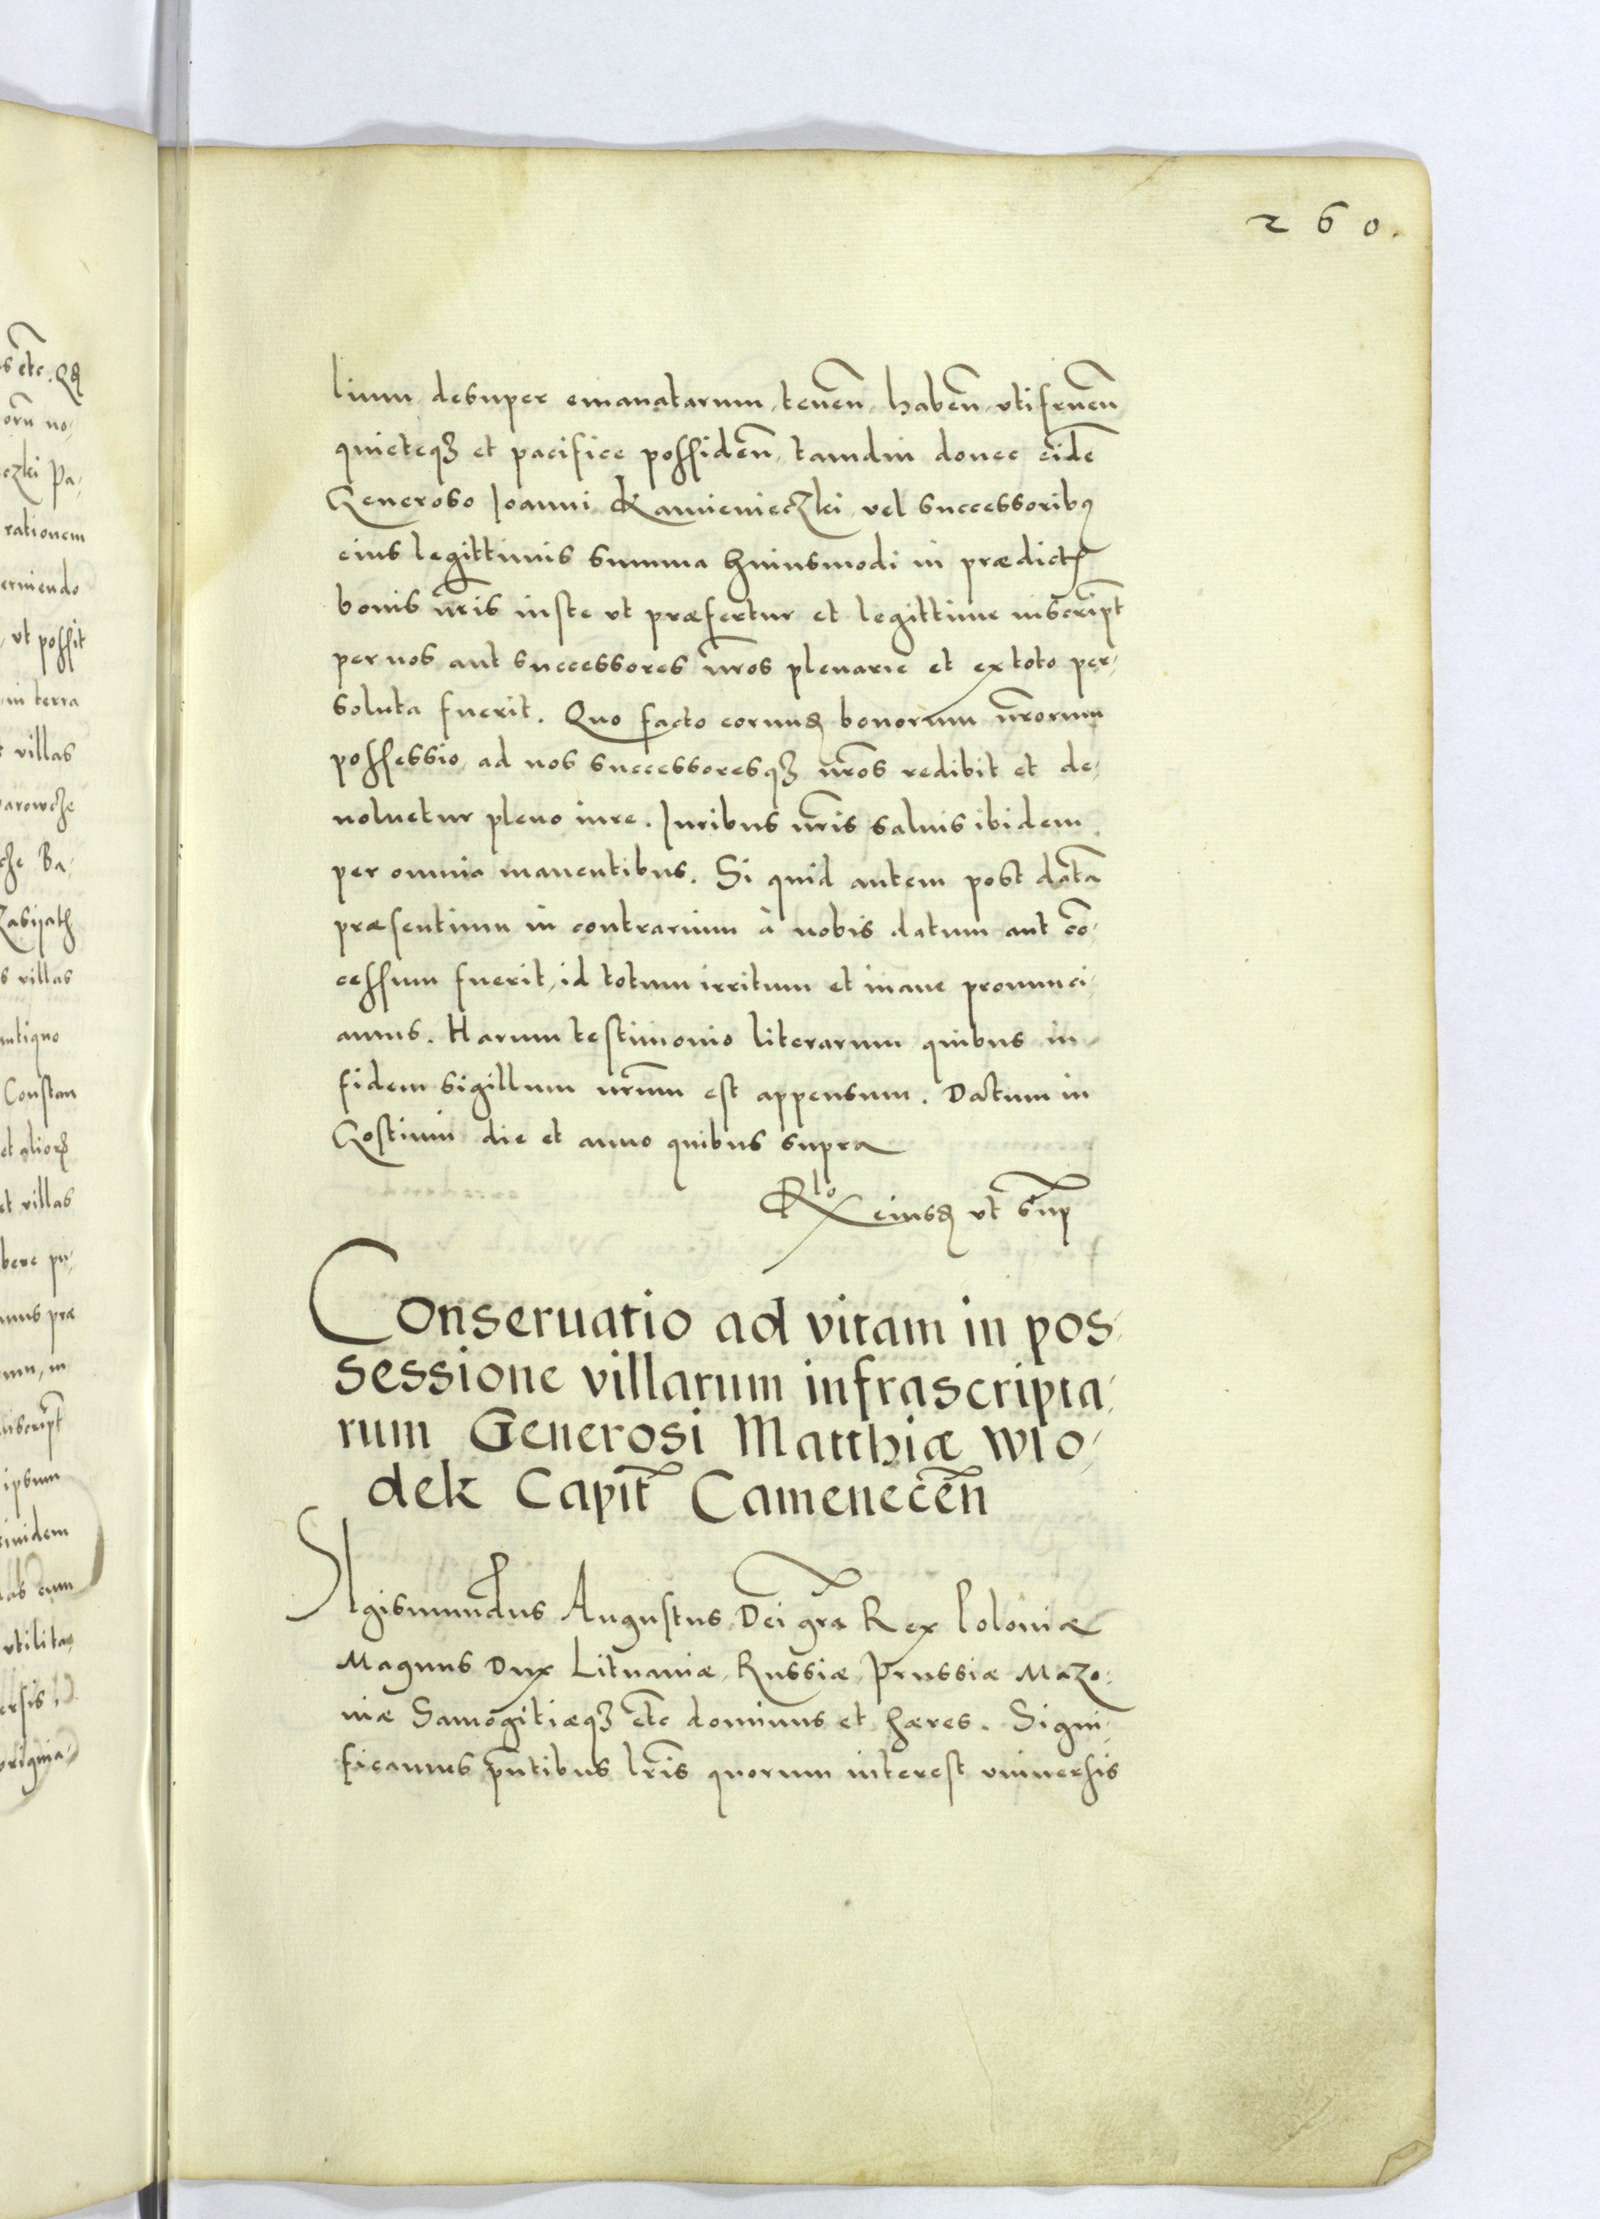 260.
lium desuper emanatarum, tenen̄, haben̄, vtifruen̄
quieteqꝫ et pacifice possiden̄, tamdiu donec eidē
Generoso Joanni Kamienieczki vel successoribꝰ
eius legittimis summa huiusmodi in prædictꝭ
bonis nr̄is iuste vt præfertur et legittime inscript̄
per nos aut successores nr̄os plenarie et ex toto per-
soluta fuerit. Quo facto eorundē bonorum nr̄orum
possessio, ad nos successoresqꝫ nr̄os redibit et de-
uoluetur pleno iure. Juribus nr̄is saluis ibidem
per omnia manentibus. Si quid autem post datā
præsentium in contrarium à nobis datum aut cō-
cessum fuerit, id totum irritum et inane pronunci-
amus. Harum testimonio literarum quibus in
fidem sigillum nr̄um est appensum. Datum in
Gostinin die et anno quibus supra
R̄lo eiusdē vt sup̄
Conseruatio ad vitam in pos-
sessione villarum infrascripta-
rum Generosi Matthiæ Wlo-
dek Capit̄ Camenecen̄
Sigismundus Augustus Dei gr̄a Rex Poloniæ
Magnus Dux Lituaniæ, Russiæ, Prussiæ Mazo-
uiæ Samogitiæqꝫ etc̄ dominus et hæres. Signi-
ficamus pn̄tibus lr̄is quorum interest vniuersis
s etc̄. Qd̄
orū no-
eczki Pa-
rationem
erniendo
, vt possit
in terra
villas
arowcze
cze Ba-
Zasijath
s villas
antiquo
Constan
et aliorꝝ
et villas
bere pu-
mus præ
um, in
inscript̄
ipsum
eiusdem
las cum
vtilita-
ersis
origina-